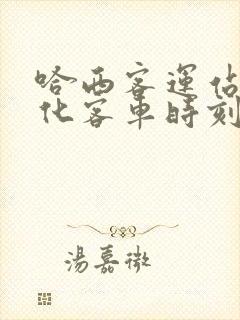 哈西客運佔
化客車時刻
湯嘉微